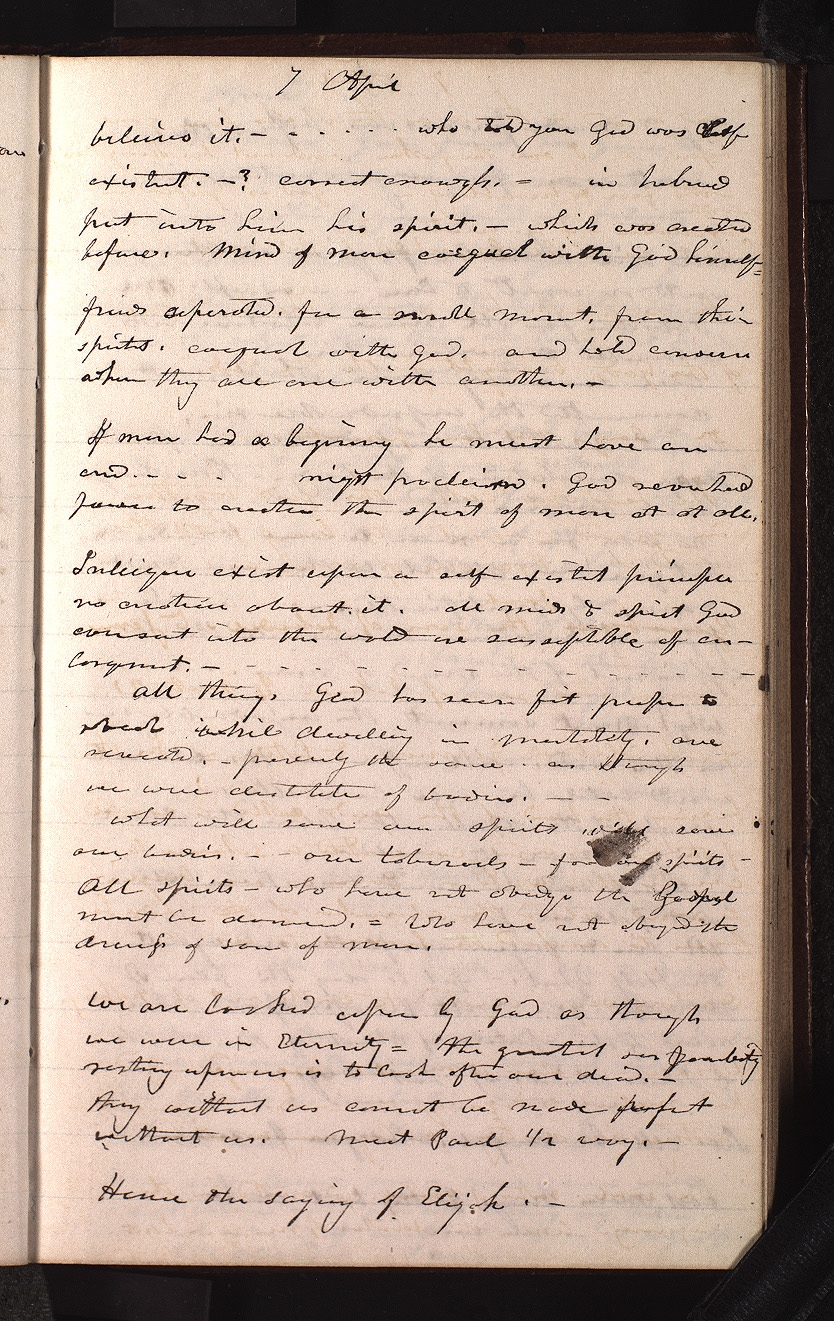 7 April
believes it. – – – – – – who told you God was self
existent. –? correct enough. = in hebrew
put into him his spirit. – which was created
before. Mind of man coequal with God himself =
friends seperated. for a small moment. from their
spirits. coequal with God. and hold converse
when they are one with another. –
If man had a beginning he must have an
end. – – . might proclaim. God never had
power to create the spirit of man at at all.
Inteligence exist upon a self existent principle
no creation about it. all mind & spirit God
ever sent into the world are susseptible of en–
largment. – – – – – – – – – – – –
all things God has seen fit proper to
reveal while dwelling in mortality. are
revealed. – precisely the same as though
we were destitute of bodies. – –
what will save our spirits will save
our bodies. – – our tabernacles – for our spirits –
All spirits – who have not obeyd the Gospel
must be damned. = who have not obeyd the
decrees of son of man.
we are looked upon by God as though
we were in Eternity = the greatest
resting upon us is to look after our dead. –
they without us cannot be made perfect
without us. meet Paul 1/2 way. –
Hence the saying of Elijah. –